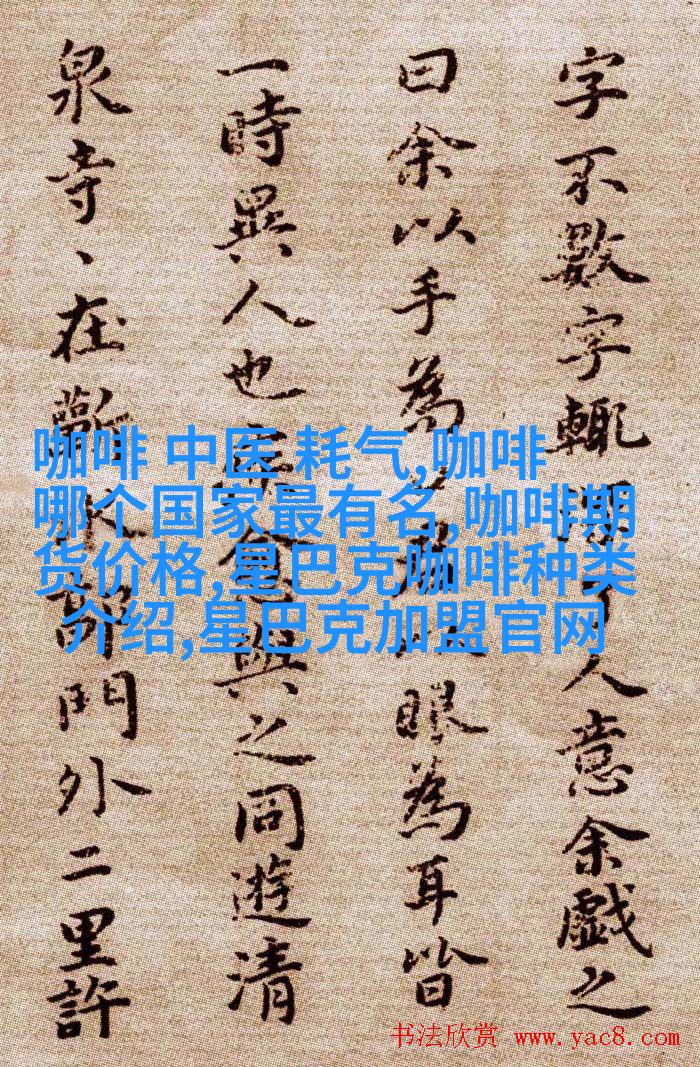 字不數字輒了人意余戲之
曰余以手為眼為耳皆
一時異人也與之同遊清
泉寺、在蘄水郭門外二里許
咖啡 中医 耗气,咖啡
哪个国家最有名,咖啡期
货价格,星巴克咖啡种类
介绍,星巴克加盟官网
书法欣赏 www.yac8.com